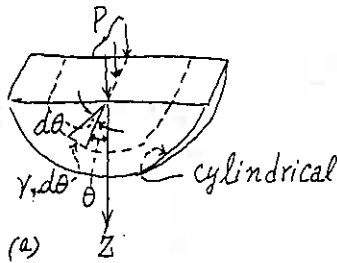 P
dθ
γ, dθ
θ
cylindrical
(a)
Z